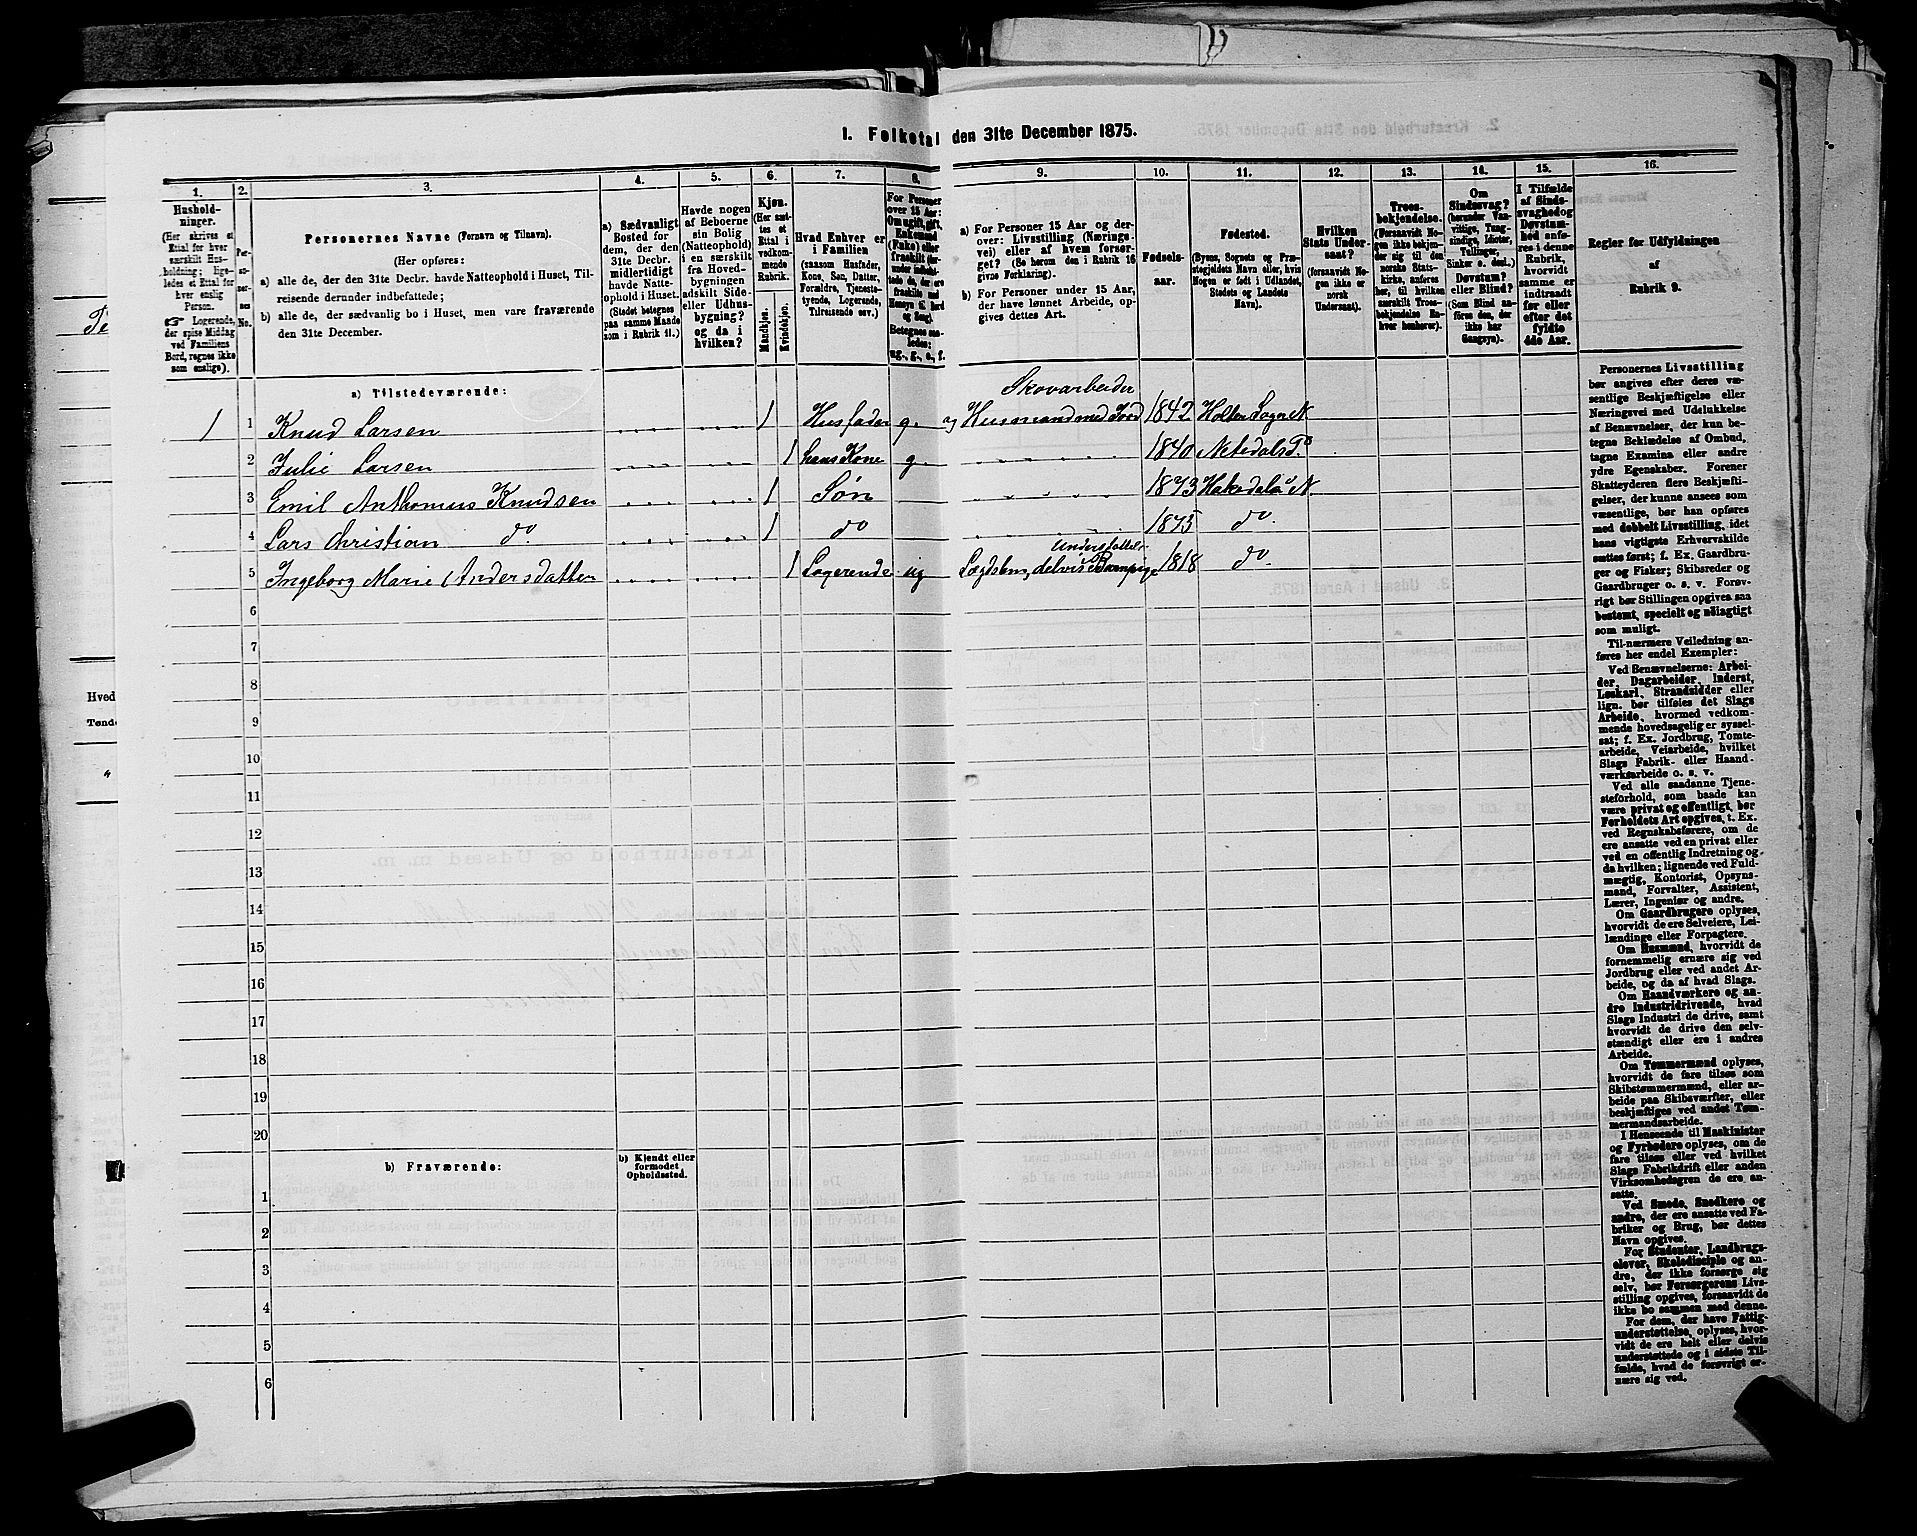 1. Folketal den 31te December 1875.
1.
2.
3.
4.
5.
6.
7.
8.
9.
10.
11.
12.
13.
14.
15.
16.
Hushold-
ninger.
(Her skrives et
Ettal for hver
særskilt Hus-
holdning; lige-
ledes et Ettal for
hver enslig
Person.
Logerende,
der spise Middag
ved Familiens
Bord, regnes ikke
som enslige).
Per-
so-
ner-
nes
No.
Personernes Navne (Fornavn og Tilnavn).
(Her opføres:
a) alle de, der den 31te Decbr. havde Natteophold i Huset, Til-
reisende derunder indbefattede;
b) alle de, der sædvanlig bo i Huset, men vare fraværende
den 31te December.
a) Sædvanligt
Bosted for
dem, der den
31te Decbr.
midlertidigt
havde Natte-
ophold i Huset.
(Stedet betegnes
paa samme Maade
som i Rubrik 11.)
Havde nogen
af Beboerne
sin Bolig
(Natteophold)
i en særskilt
fra Hoved-
bygningen
adskilt Side-
eller Udhus-
bygning?
og da i
hvilken?
Kjøn.
(Her sæt-
tes et
Ettal i
vedkom-
mende
Rubrik.
Mandkjøn.
Kvindekjøn.
Hvad Enhver er
i Familien
(saasom Husfader,
Kone, Søn, Datter,
Forældre, Tjeneste-
tyende, Logerende,
Tilreisende osv.)
For Personer
over 15 Aar:
Om ugift, gift,
Enkemand
(Enke) eller
fraskilt
Betegnes saa-
ledes:
ug., g., e., f.
a) For Personer 15 Aar og der-
over: Livsstilling (Nærings-
vei) eller af hvem forsør-
get? (Se herom den i Rubrik 16
givne Forklaring).
b) For Personer under 15 Aar,
der have lønnet Arbeide, op-
gives dettes Art.
Fødsels-
aar.
Fødested.
(Byens, Sognets og Præ-
stegjeldets Navn eller, hvis
Nogen er født i Udlandet,
Stedets og Landets
Navn).
Hvilken
Stats Under-
saat?
(forsaavidt No-
gen ikke er
norsk
Undersaat).
Troes-
bekjendelse.
(Forsaavidt No-
gen ikke bekjen-
der sig til den
norske Stats-
kirke, anføres
her, til hvilken
særskilt Troes-
bekjendelse En-
hver henhører).
Om
Sindssvag?
(herunder Van-
vittige, Tung-
sindige, Idioter,
Tullinger,
Sinker o. desl.)
Døvstum?
eller Blind?
(Som Blind an-
føres den, der
ikke har
Gangsyn).
I Tilfælde
af Sinds-
svaghed og
Døvstum-
hed anfø-
res i denne
Rubrik,
hvorvidt
samme er
indtraadt
før eller
efter det
fyldte
4de Aar.
Regler for Udfyldningen
af
Rubrik 9.
a) Tilstedeværende:
Skovarbeider
1 1 Knud Larsen 1 Husfader g. og Husmand med Jord 1842 Holter Sogn N
2 Julie Larsen 1 hans Kone g. 1840 Nitedals Do
3 Emil Anthonius Knudsen 1 Søn 1873 Hakedals N
4 Lars Christian do. 1 do 1875 do.
Understøttet
5 Ingeborg Marie Andersdatter 1 Logerende ug Lægdslem, delvis 1818 do.
6
7
8
9
10
11
12
13
14
15
16
17
18
19
20
b) Fraværende:
b) Kjendt eller
formodet
Opholdssted.
1
2
3
4
5
6
Personernes Livsstilling
bør angives efter deres væ-
sentlige Beskjæftigelse eller
Næringsvei med Udelukkelse
af Benævnelser, der kun be-
tegne Beklædelse af Ombud,
tagne Examina eller andre
ydre Egenskaber. Forener
Skatteyderen flere Beskjæfti-
gelser, der kunne ansees som
væsentlige, bør han opføres
med dobbelt Livsstilling, idet
hans vigtigste Erhvervskilde
sættes først; f. Ex. Gaardbru-
ger og Fisker; Skibsreder og
Gaardbruger o. s. v. Forøv-
rigt bør Stillingen opgives saa
bestemt, specielt og nøiagtigt
som muligt.
Til nærmere Veiledning an-
føres her endel Exempler:
Ved Benævnelserne: Arbei-
der, Dagarbeider, Inderst,
Løskarl, Strandsidder eller
lign. bør tilføies det Slags
Arbeide, hvormed vedkom-
mende hovedsagelig er syssel-
sat; f. Ex. Jordbrug, Tomte-
arbeide, Veiarbeide, hvilket
Slags Fabrik- eller Haand-
værksarbeide o. s. v.
Ved alle saadanne Tjene-
steforhold, som baade kan
være privat og offentligt, bør
Forholdets Art opgives, t. Ex.
ved Regnskabsførere, om de
ere ansatte ved en privat eller
ved en offentlig Indretning og
da hvilken; lignende ved Fuld-
mægtig, Kontorist, Opsyns-
mand, Forvalter, Assistent,
Lærer, Ingeniør og andre.
Om Gaardbrugere oplyses,
hvorvidt de ere Selveiere, Lei-
lændinge eller Forpagtere.
Om Husmænd, hvorvidt de
fornemmelig ernære sig ved
Jordbrug eller ved andet Ar-
beide, og da af hvad Slags.
Om Haandværkere og an-
dre Industridrivende, hvad
Slags Industri de drive, samt
hvorvidt de drive den selv-
stændigt eller ere i andres
Arbeide.
Om Tømmermænd oplyses,
hvorvidt de fare tilsøs som
Skibstømmermænd, eller ar-
beide paa Skibsværfter, eller
beskjæftiges ved andet Tøm-
mermandsarbeide.
I Henseende til Maskinister
og Fyrbødere oplyses, om de
fare tilsøs eller ved hvilket
Slags Fabrikdrift eller anden
Virksomhedsgren de ere an-
satte.
Ved Smede, Snedkere og
andre, der ere ansatte ved Fa-
briker og Brug, bør dettes
Navn opgives.
For Studenter, Landbrugs-
elever, Skoledisciple og an-
dre, der ikke forsørge sig
selv, bør Forsørgerens Livs-
stilling opgives, forsaavidt de
ikke bo sammen med denne.
For dem, der have Fattig-
understøttelse, oplyses, hvor-
vidt de ere helt eller delvis
understøttede og i sidste Til-
fælde, hvad de forøvrigt er-
nære sig ved.
Hved
Tønde